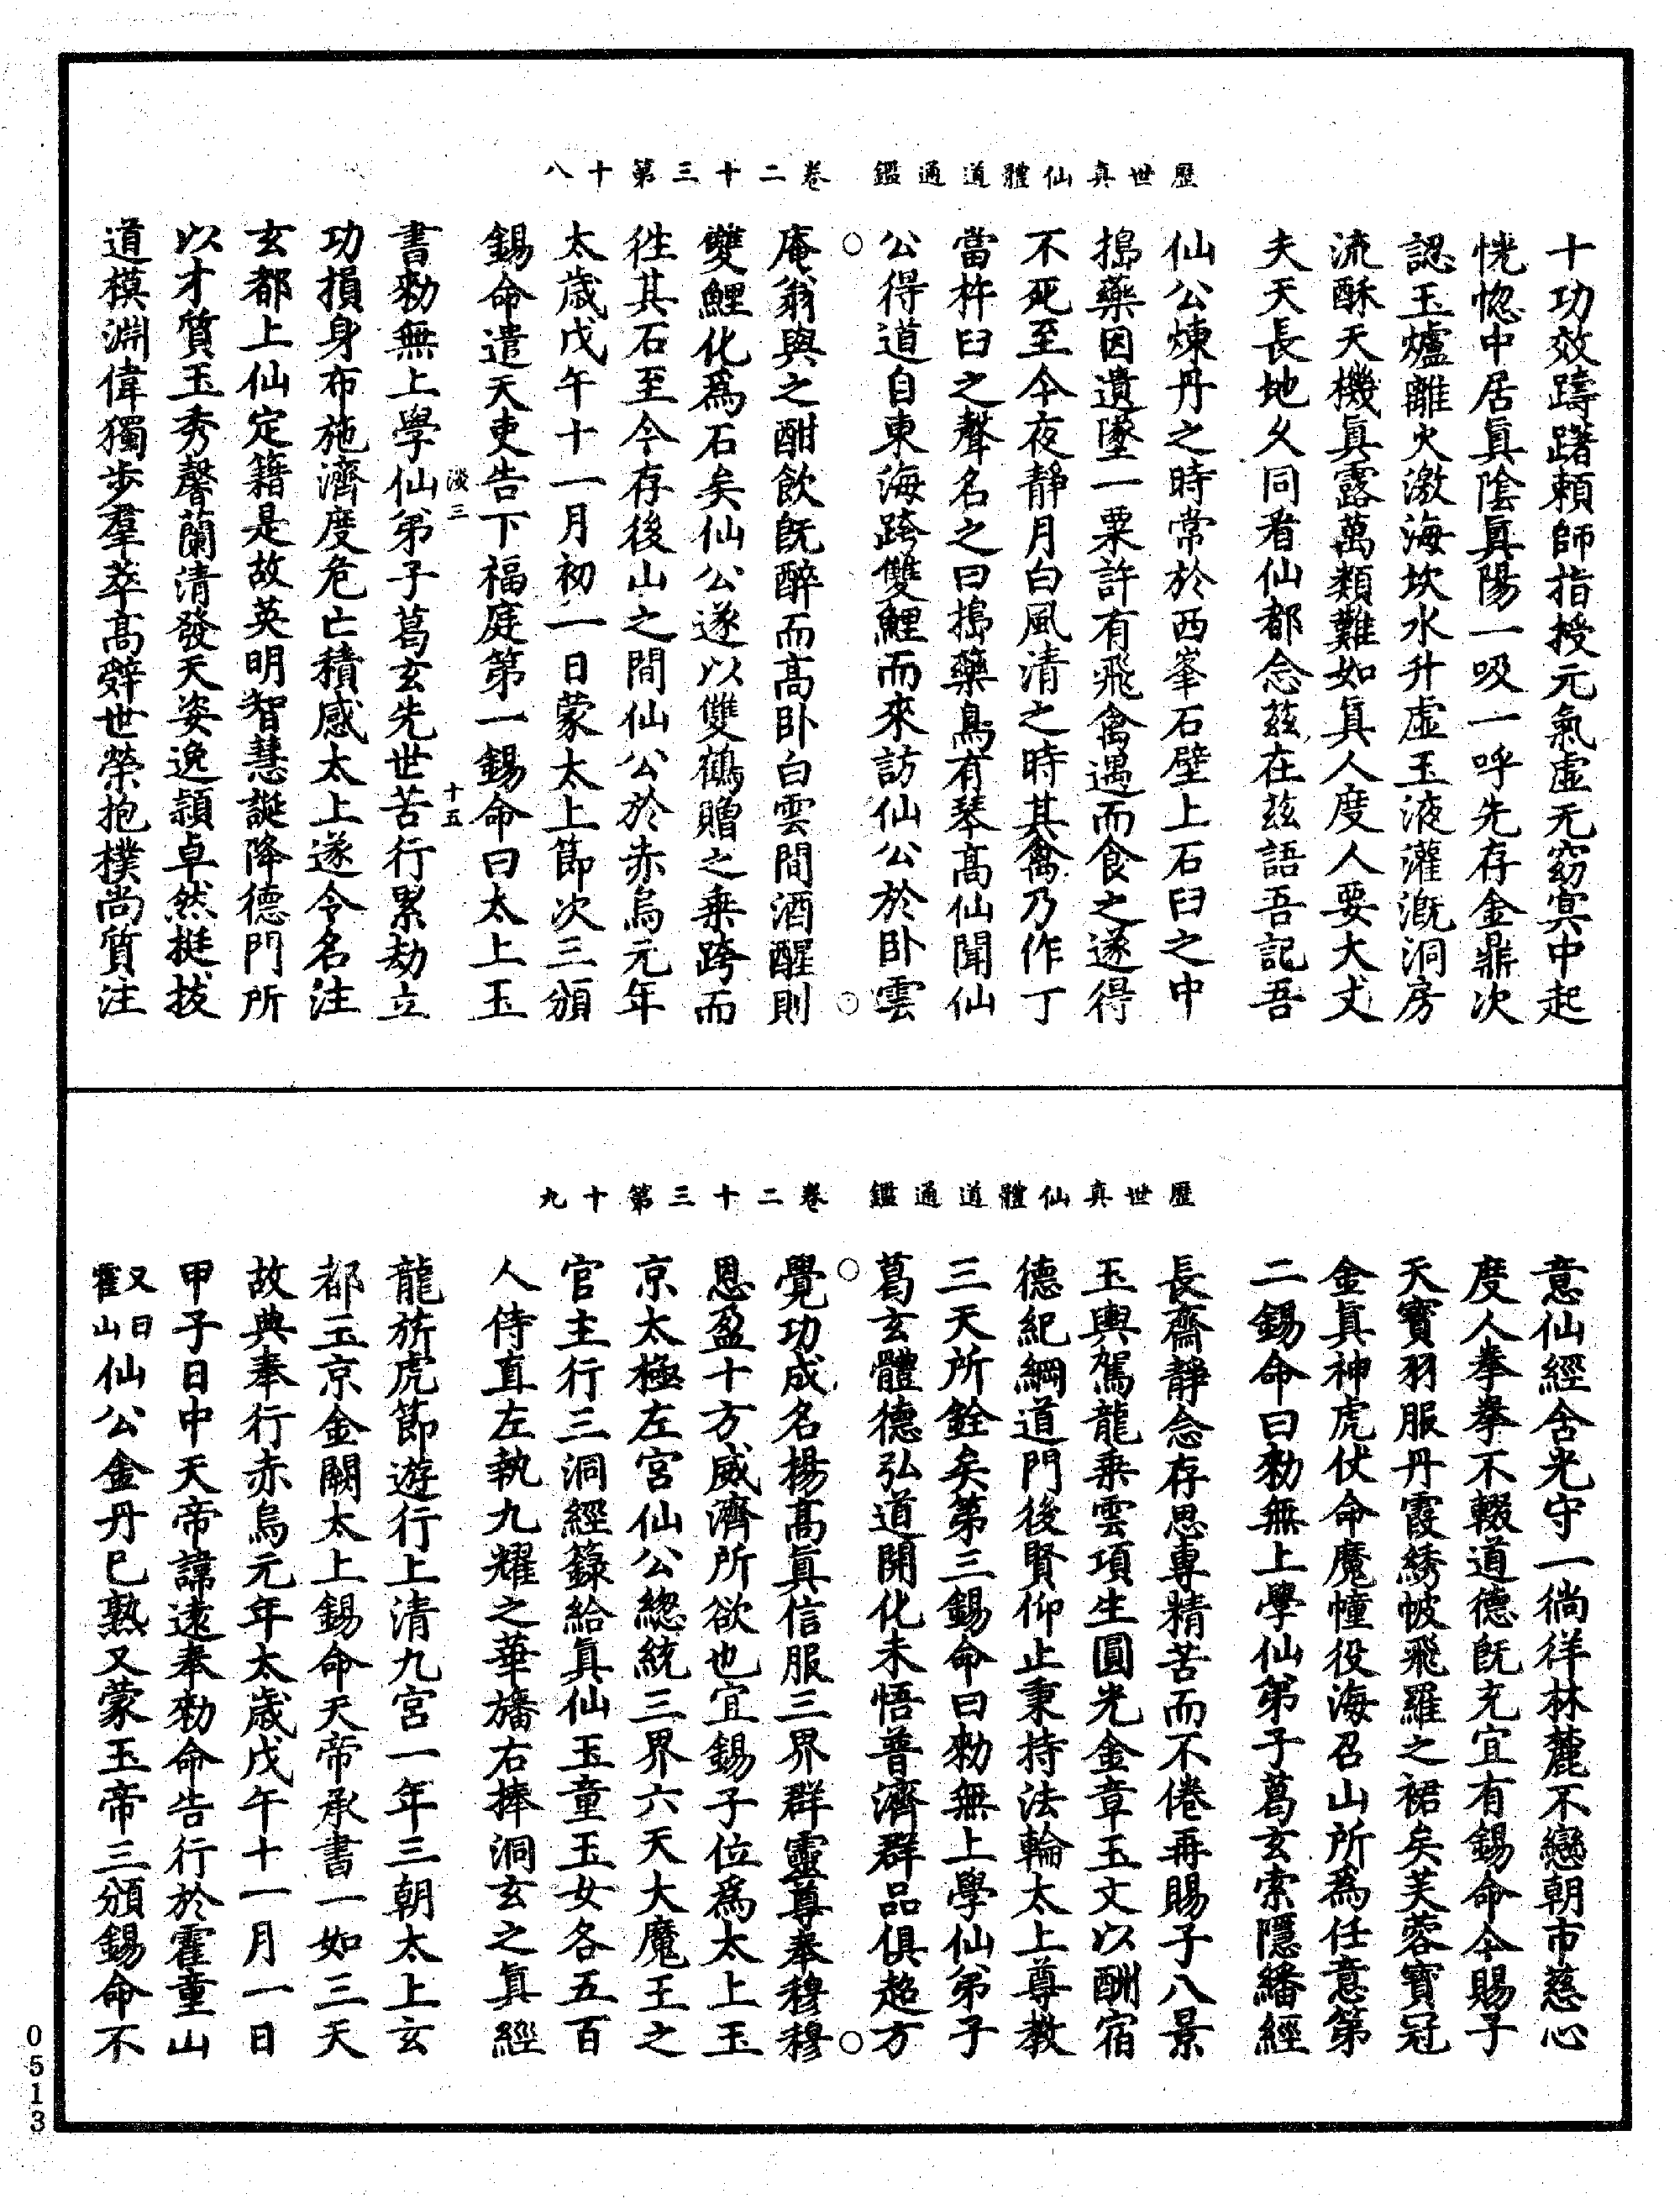 歷世真仙體道通鑑　卷二十三第十八
十功效躊躇賴師指授元氣虛无窈㝠中起
恍惚中居眞陰眞陽一吸一呼先存金鼎次
認玉爐離火激海坎水升虛玉液灌漑洞房
流酥天機眞露萬類難如眞人度人要大丈
夫天長地久同看仙都念茲在茲語吾記吾
仙公煉丹之時常於西峯石壁上石臼之中
搗藥因遺墜一粟許有飛禽遇而食之遂得
不死至今夜靜月白風清之時其禽乃作丁
當杵臼之聲名之曰搗藥鳥有琴高仙聞仙
公得道自東海跨雙鯉而來訪仙公於卧雲
庵翁與之酣飲旣醉而高卧白雲間酒醒則
雙鯉化爲石矣仙公遂以雙鶴贈之乗跨而
徃其石至今存後山之間仙公於赤烏元年
太歲戊午十一月初一日蒙太上節次三頒
錫命遣天吏告下福庭第一錫命曰太上玉
淡三　十五
書勑無上學仙弟子葛玄先世苦行累劫立
功損身布施濟度危亡積感太上遂令名注
玄都上仙定籍是故英明智慧誕降德門所
以才質玉秀馨蘭清發天姿逸頴卓然挺拔
道模淵偉獨步羣萃高辤世榮抱樸尚質注
歷世真仙體道通鑑　卷二十三第十九
意仙經含光守一徜徉林麓不戀朝市慈心
度人拳拳不輟道德旣充宜有錫命今賜子
天寶羽服丹霞綉帔飛羅之裙矣芙蓉寶冠
金眞神虎伏命魔幢役海召山所爲任意第
二錫命曰勑無上學仙弟子葛玄索隱繙經
長齋靜念存思專精苦而不倦再賜子八景
玉輿駕龍乗雲項生圓光金章玉文以酬宿
德紀綱道門後賢仰止秉持法輪太上尊教
三天所銓矣第三錫命曰勑無上學仙弟子
葛玄體德弘道開化未悟普濟群品俱超方
覺功成名揚高眞信服三界群靈尊奉穆穆
恩盈十方威濟所欲也宜錫子位爲太上玉
京太極左宮仙公緫統三界六天大魔王之
官主行三洞經籙給眞仙玉童玉女各五百
人侍直左執九耀之華旛右捧洞玄之眞經
龍旂虎節遊行上清九宮一年三朝太上玄
都玉京金闕太上錫命天帝承書一如三天
故典奉行赤烏元年太歲戊午十一月一日
甲子日中天帝諱遠奉勑命告行於霍童山
又曰霍山仙公金丹已熟又蒙玉帝三頒錫命不
0513